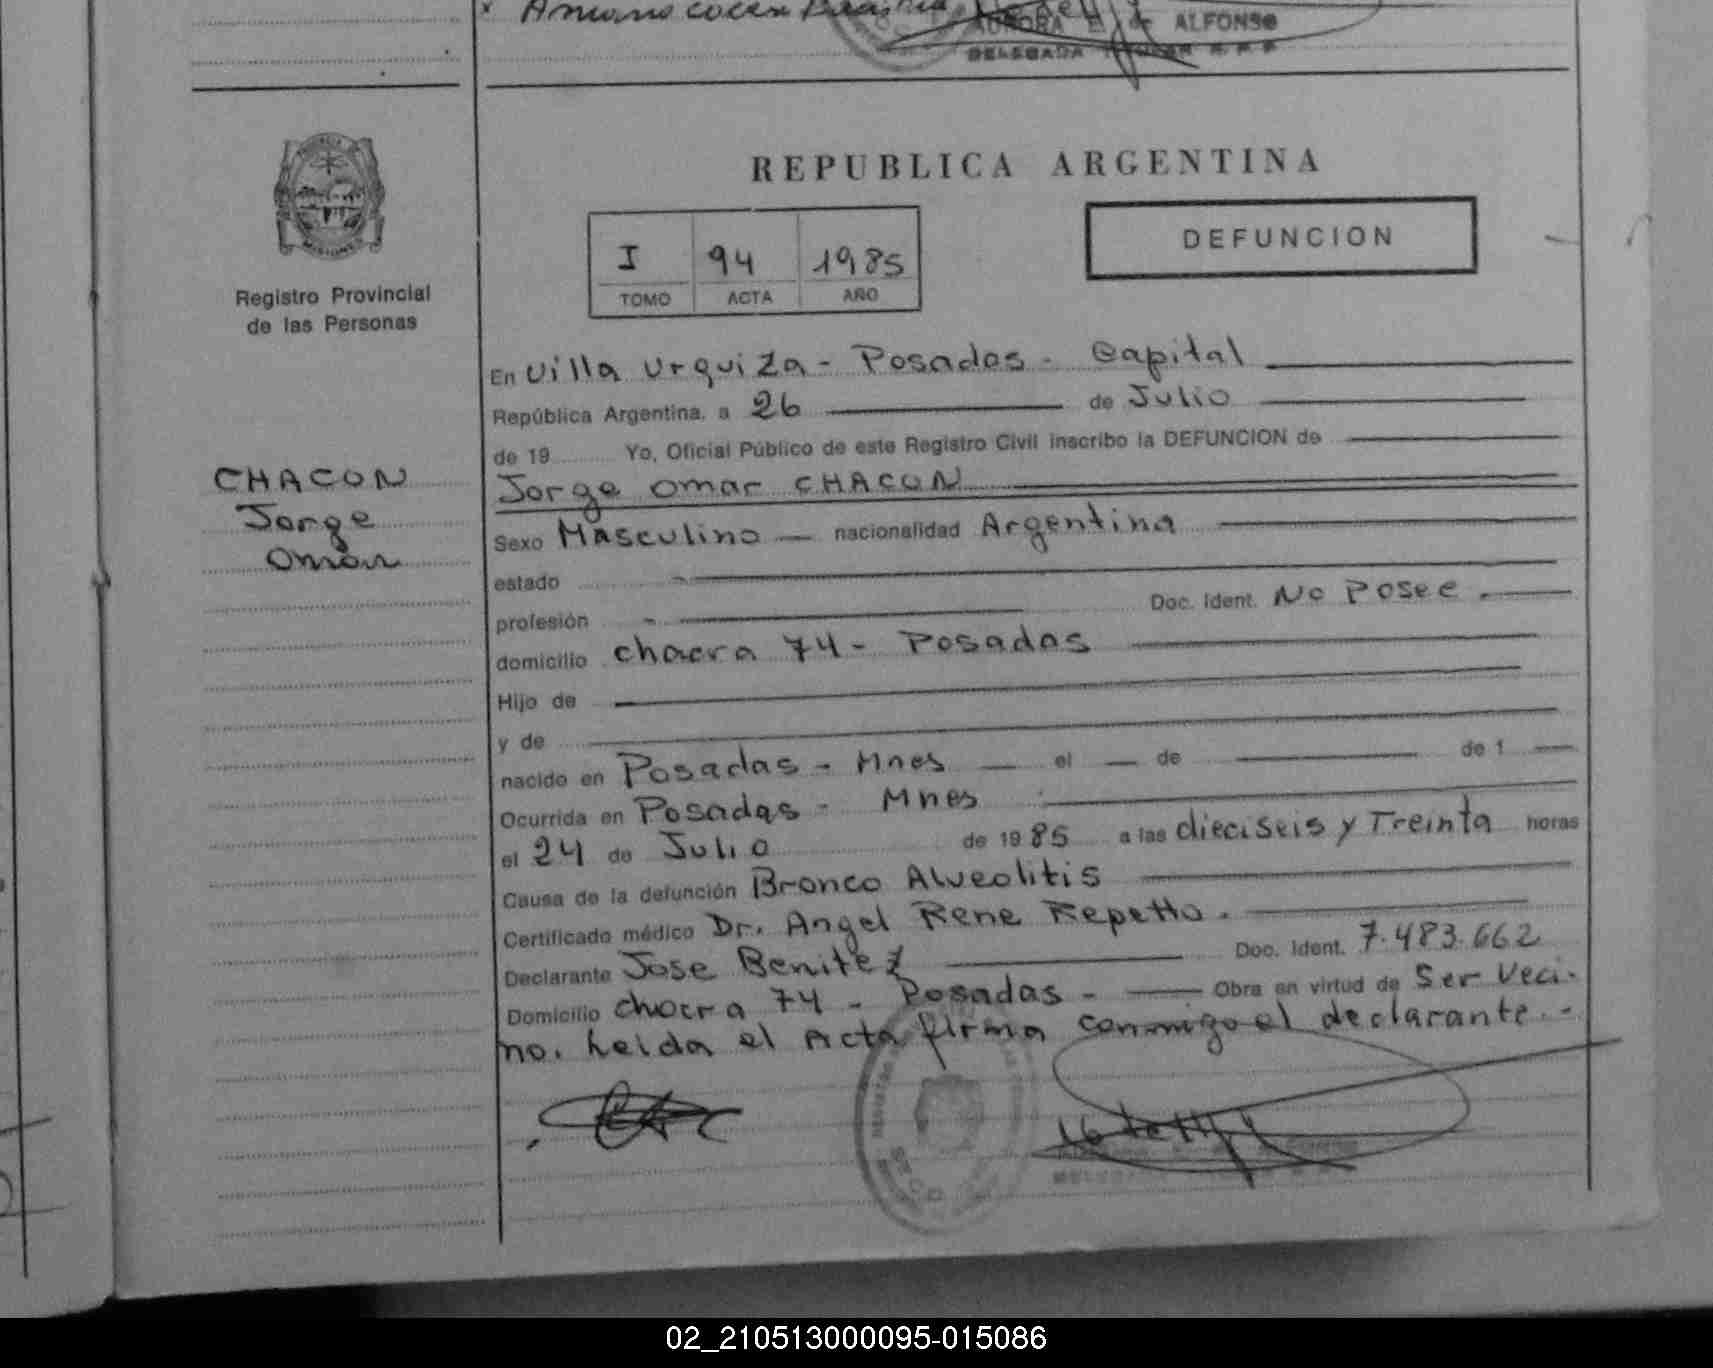 ALFONSO
DELEGADA
REPUBLICA ARGENTINA
DEFUNCION
I 94 1985
TOMO ACTA AÑO
Registro Provincial
de las Personas
CHACON
Jorge
Omar
En Villa Urquiza - Posadas - Capital
República Argentina, a 26 de Julio
de 19 Yo, Oficial Público de este Registro Civil inscribo la DEFUNCION de
Jorge Omar CHACON
Sexo Masculino nacionalidad Argentina
estado
profesión Doc. Ident. No Posee.
domicilio chacra 74 - Posadas
Hijo de
y de
nacido en Posadas - Mnes el de de 1
Ocurrida en Posadas - Mnes
el 24 de Julio de 1985 a las dieciseis y Treinta horas
Causa de la defunción Bronco Alveolitis
Certificado médico Dr. Angel Rene Repetto.
Declarante Jose Benitez Doc. Ident. 7.483.662
Domicilio chacra 74 - Posadas - Obra en virtud de Ser Veci-
no. Leida el Acta firma conmigo el declarante.-
02_210513000095-015086